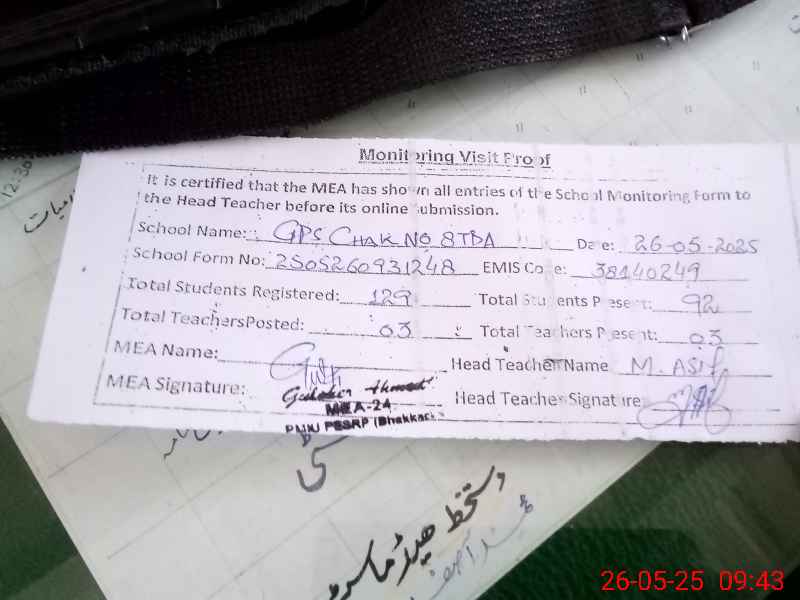 Monitoring Visit Proof
It is certified that the MEA has shown all entries of the School Monitoring Form to
the Head Teacher before its online submission.
School Name: GPS CHAK NO 8TDA Date: 26-05-2025
School Form No: 250526093124B EMIS Code: 38140249
Total Students Registered: 129 Total Students Present: 92
Total TeachersPosted: 03 Total Teachers Present: 03
MEA Name: Head Teacher Name M. ASIF
MEA Signature: Head Teacher Signature
Ahmed
MEA-24
PMIU PESRP (Bhakkar)
دستخط ہیڈ ماسٹر
12:30
26-05-25 09:43